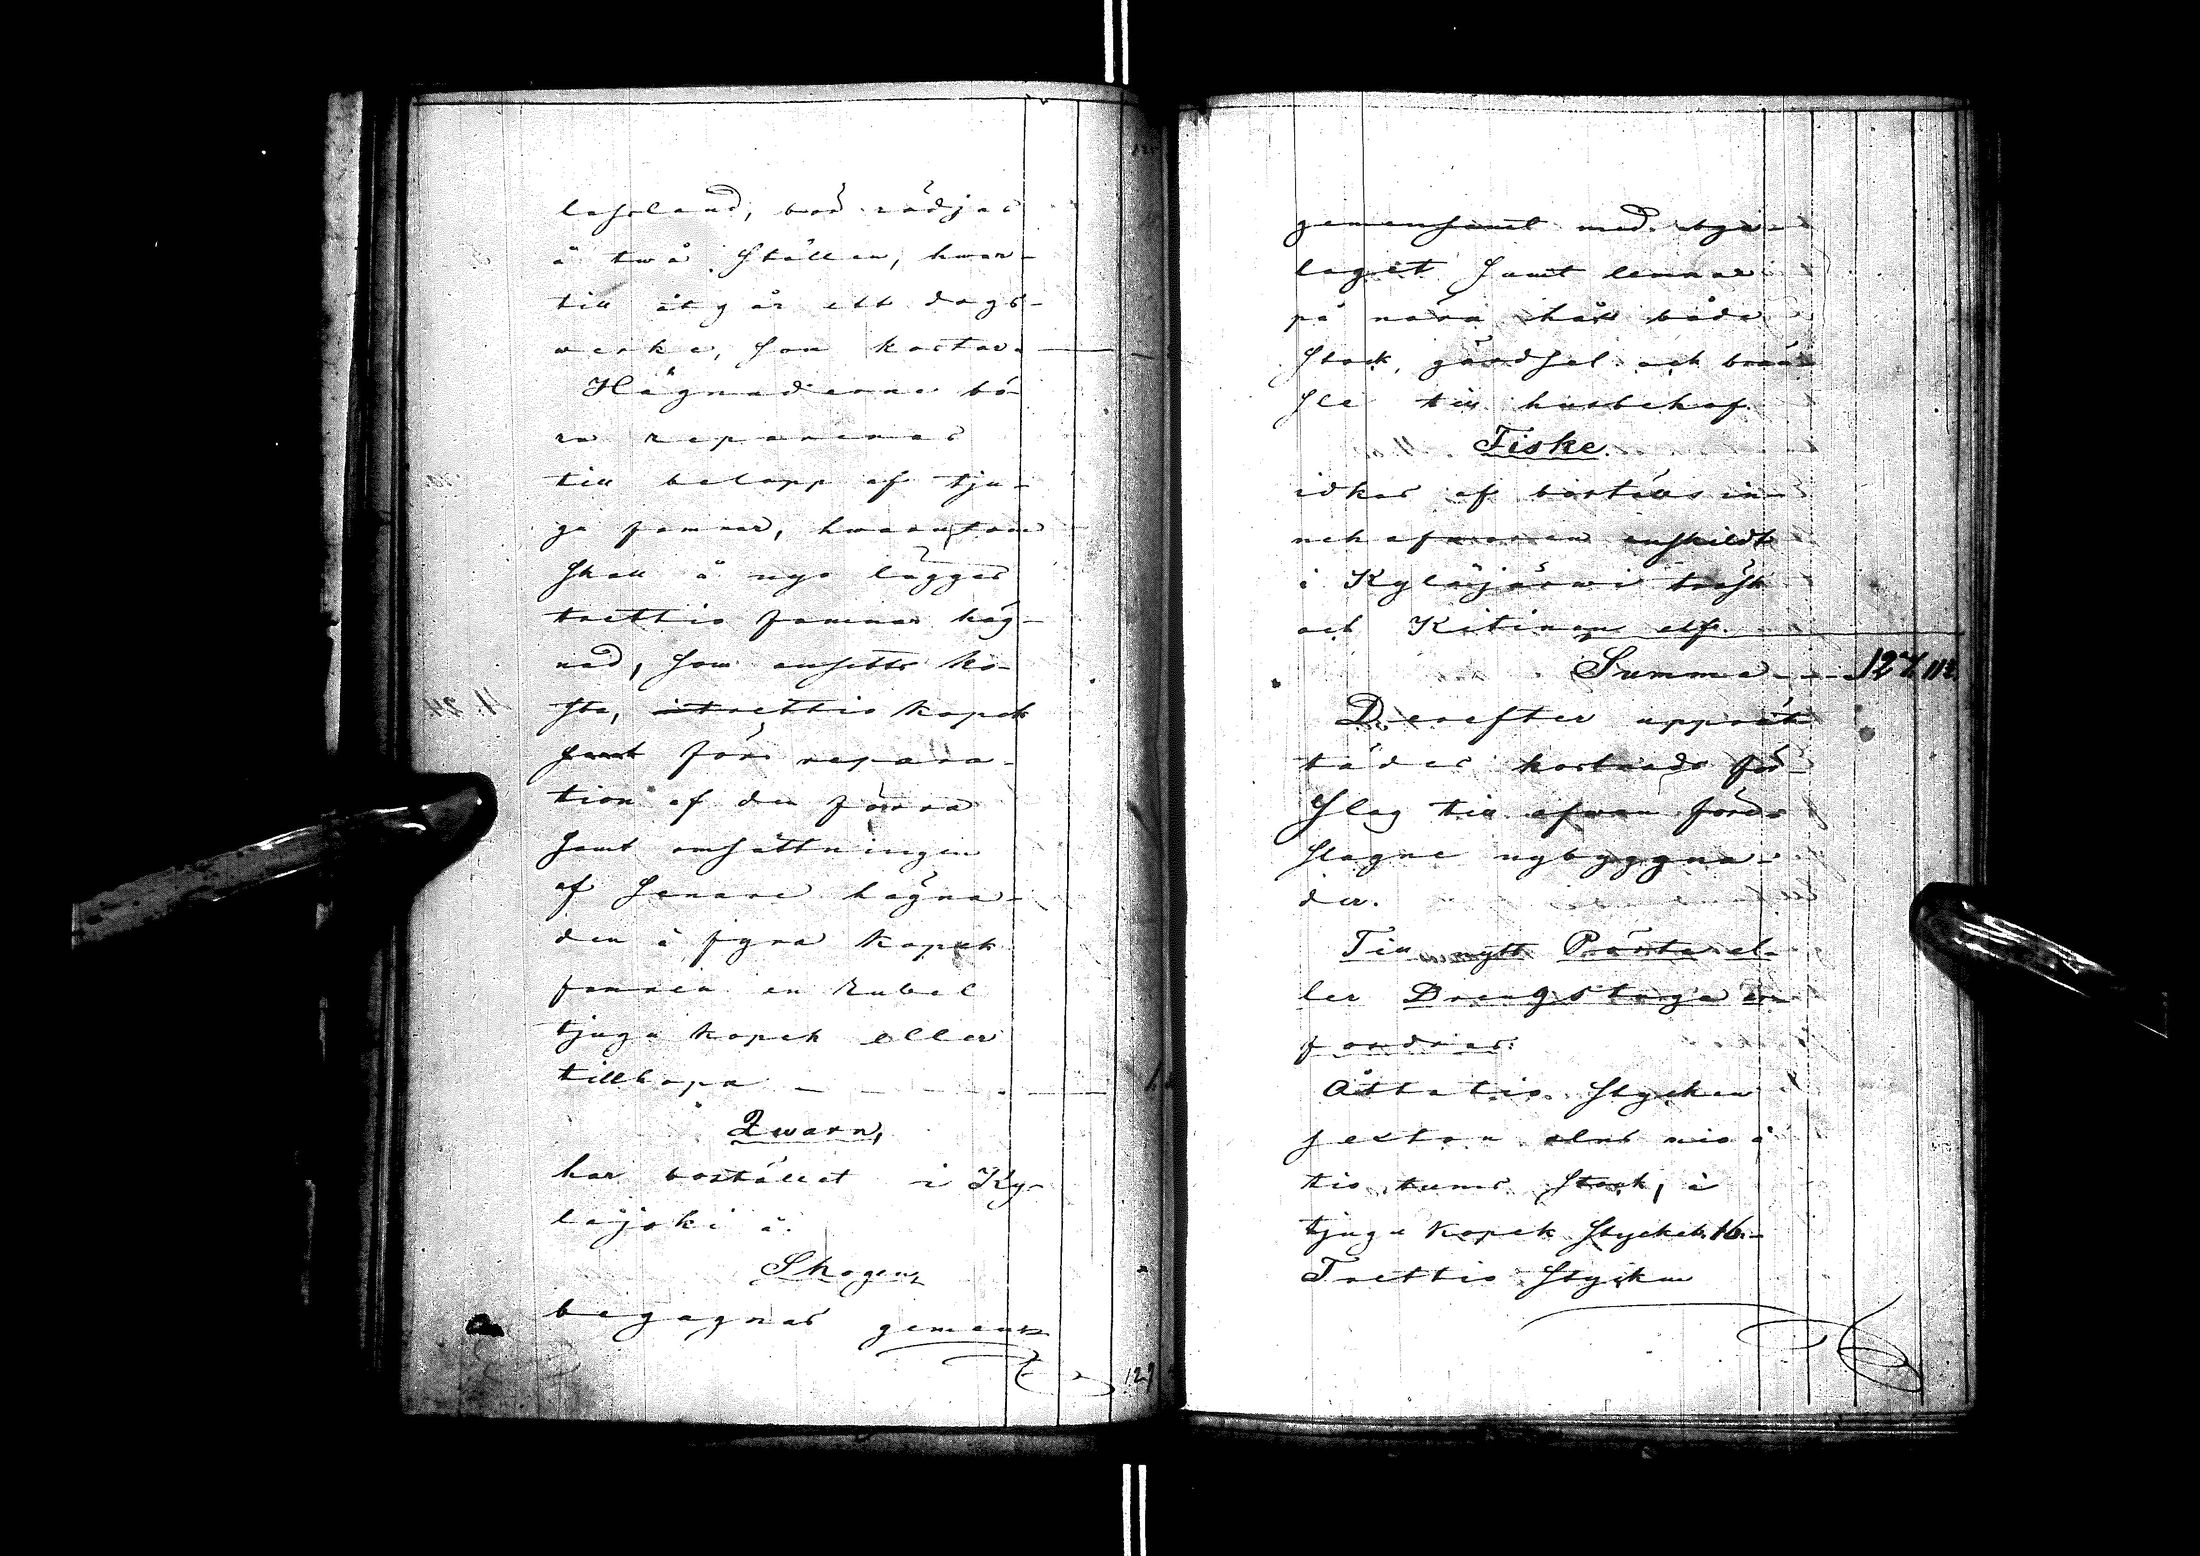 bör rödjas
å två ställen, hwar-
till åtgår ett dags-
werke, som kostar
Hägnaderne bö-
ra repareras
till belopp af tju-
gu famnar, hwarutom
skall å nyo läggas
trettio famnar häg-
nad, som ansetts ko-
sta, trettio kopek
samt för repara-
tion af den förra
samt omsättningen
af senare hägna-
den à fyra kopek
famnen en rubel
tjugu kopek eller
tillhopa
Qwarn,
har bostället i Ky-
läjoki å.
Skogen,
begagnas gemens
gemensamt med
laget samt lemnar
på nära håll både
stock, gärdsel och brän-
sle till husbehof.
Fiske
idkas af boställsin-
nehafwaren enskildt
i Kyläjärwi träsk
och Kitinen elf.
Summa 127
Derefter upprät-
tades kostnads för-
slag till ofwan före-
slagne nybyggna-
der.
Till nytt Pörte el-
ler Drängstuga er-
fordras:
Åttatio stycken
sexton alns nio à
tio tums stock, à
tjugu kopek stycket 16.-
Trettio stycken